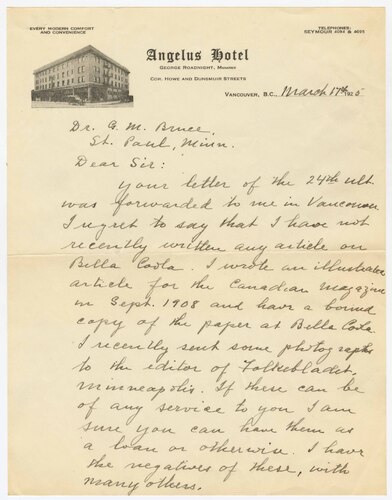 EVERY MODERN COMFORT
AND CONVENIENCE
TELEPHONES:
SEYMOUR 4094 & 4095
Angelus Hotel
GEORGE ROADNIGHT, MANAGER
COR. HOWE AND DUNSMUIR STREETS
VANCOUVER, B.C., March 17th 1925
Dr. G. M. Bruce,
St. Paul, Minn.
Dear Sir:
your letter of the 24th ult.
was forwarded to me in Vancouver
I regret to say that I have not
recently written any article on
Bella Coola. I wrote an illustrated
article for the Canadian Magazine
in Sept. 1908 and have a bound
copy of the paper at Bella Coola
I recently sent some photographs
to the editor of Folkebladet,
Minneapolis. If these can be
of any service to you I am
sure you can have them as
a loan or otherwise. I have
the negatives of these, with
many others.